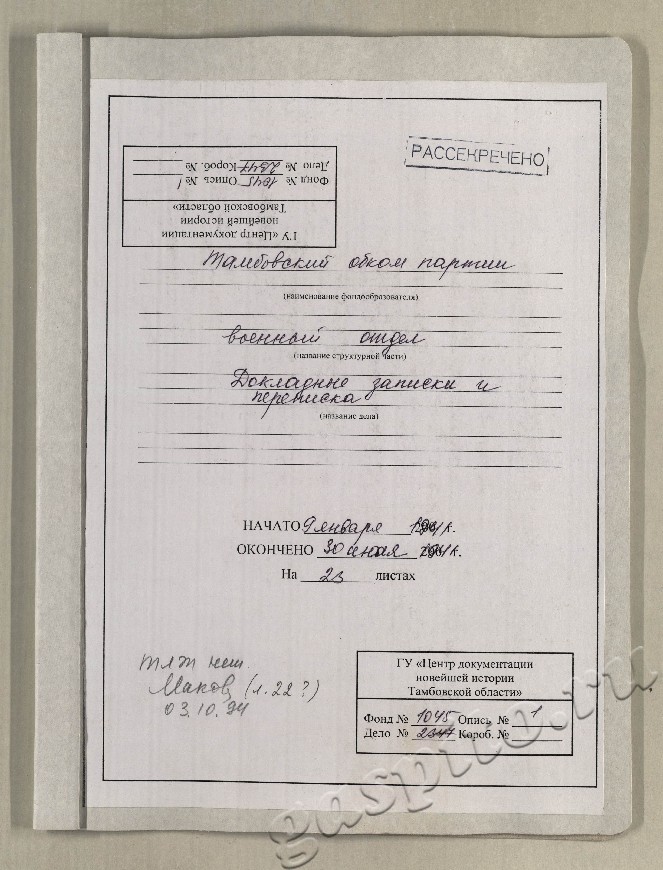 РАССЕКРЕЧЕНО
ГУ «Центр документации
новейшей истории
Тамбовской области»
Фонд № 1045 Опись № 1
Дело № 2347 Короб. №
Тамбовский обком партии
(наименование фондообразователя)
военный отдел
(название структурной части)
Докладные записки и
переписка
(название дела)
НАЧАТО 9 января 1941 г.
ОКОНЧЕНО 30 1941 г.
На 23 листах
нет.
Маков (л. 22?)
03.10.94
ГУ «Центр документации
новейшей истории
Тамбовской области»
Фонд № 1045 Опись № 1
Дело № 2347 Короб. №
gaspito.ru